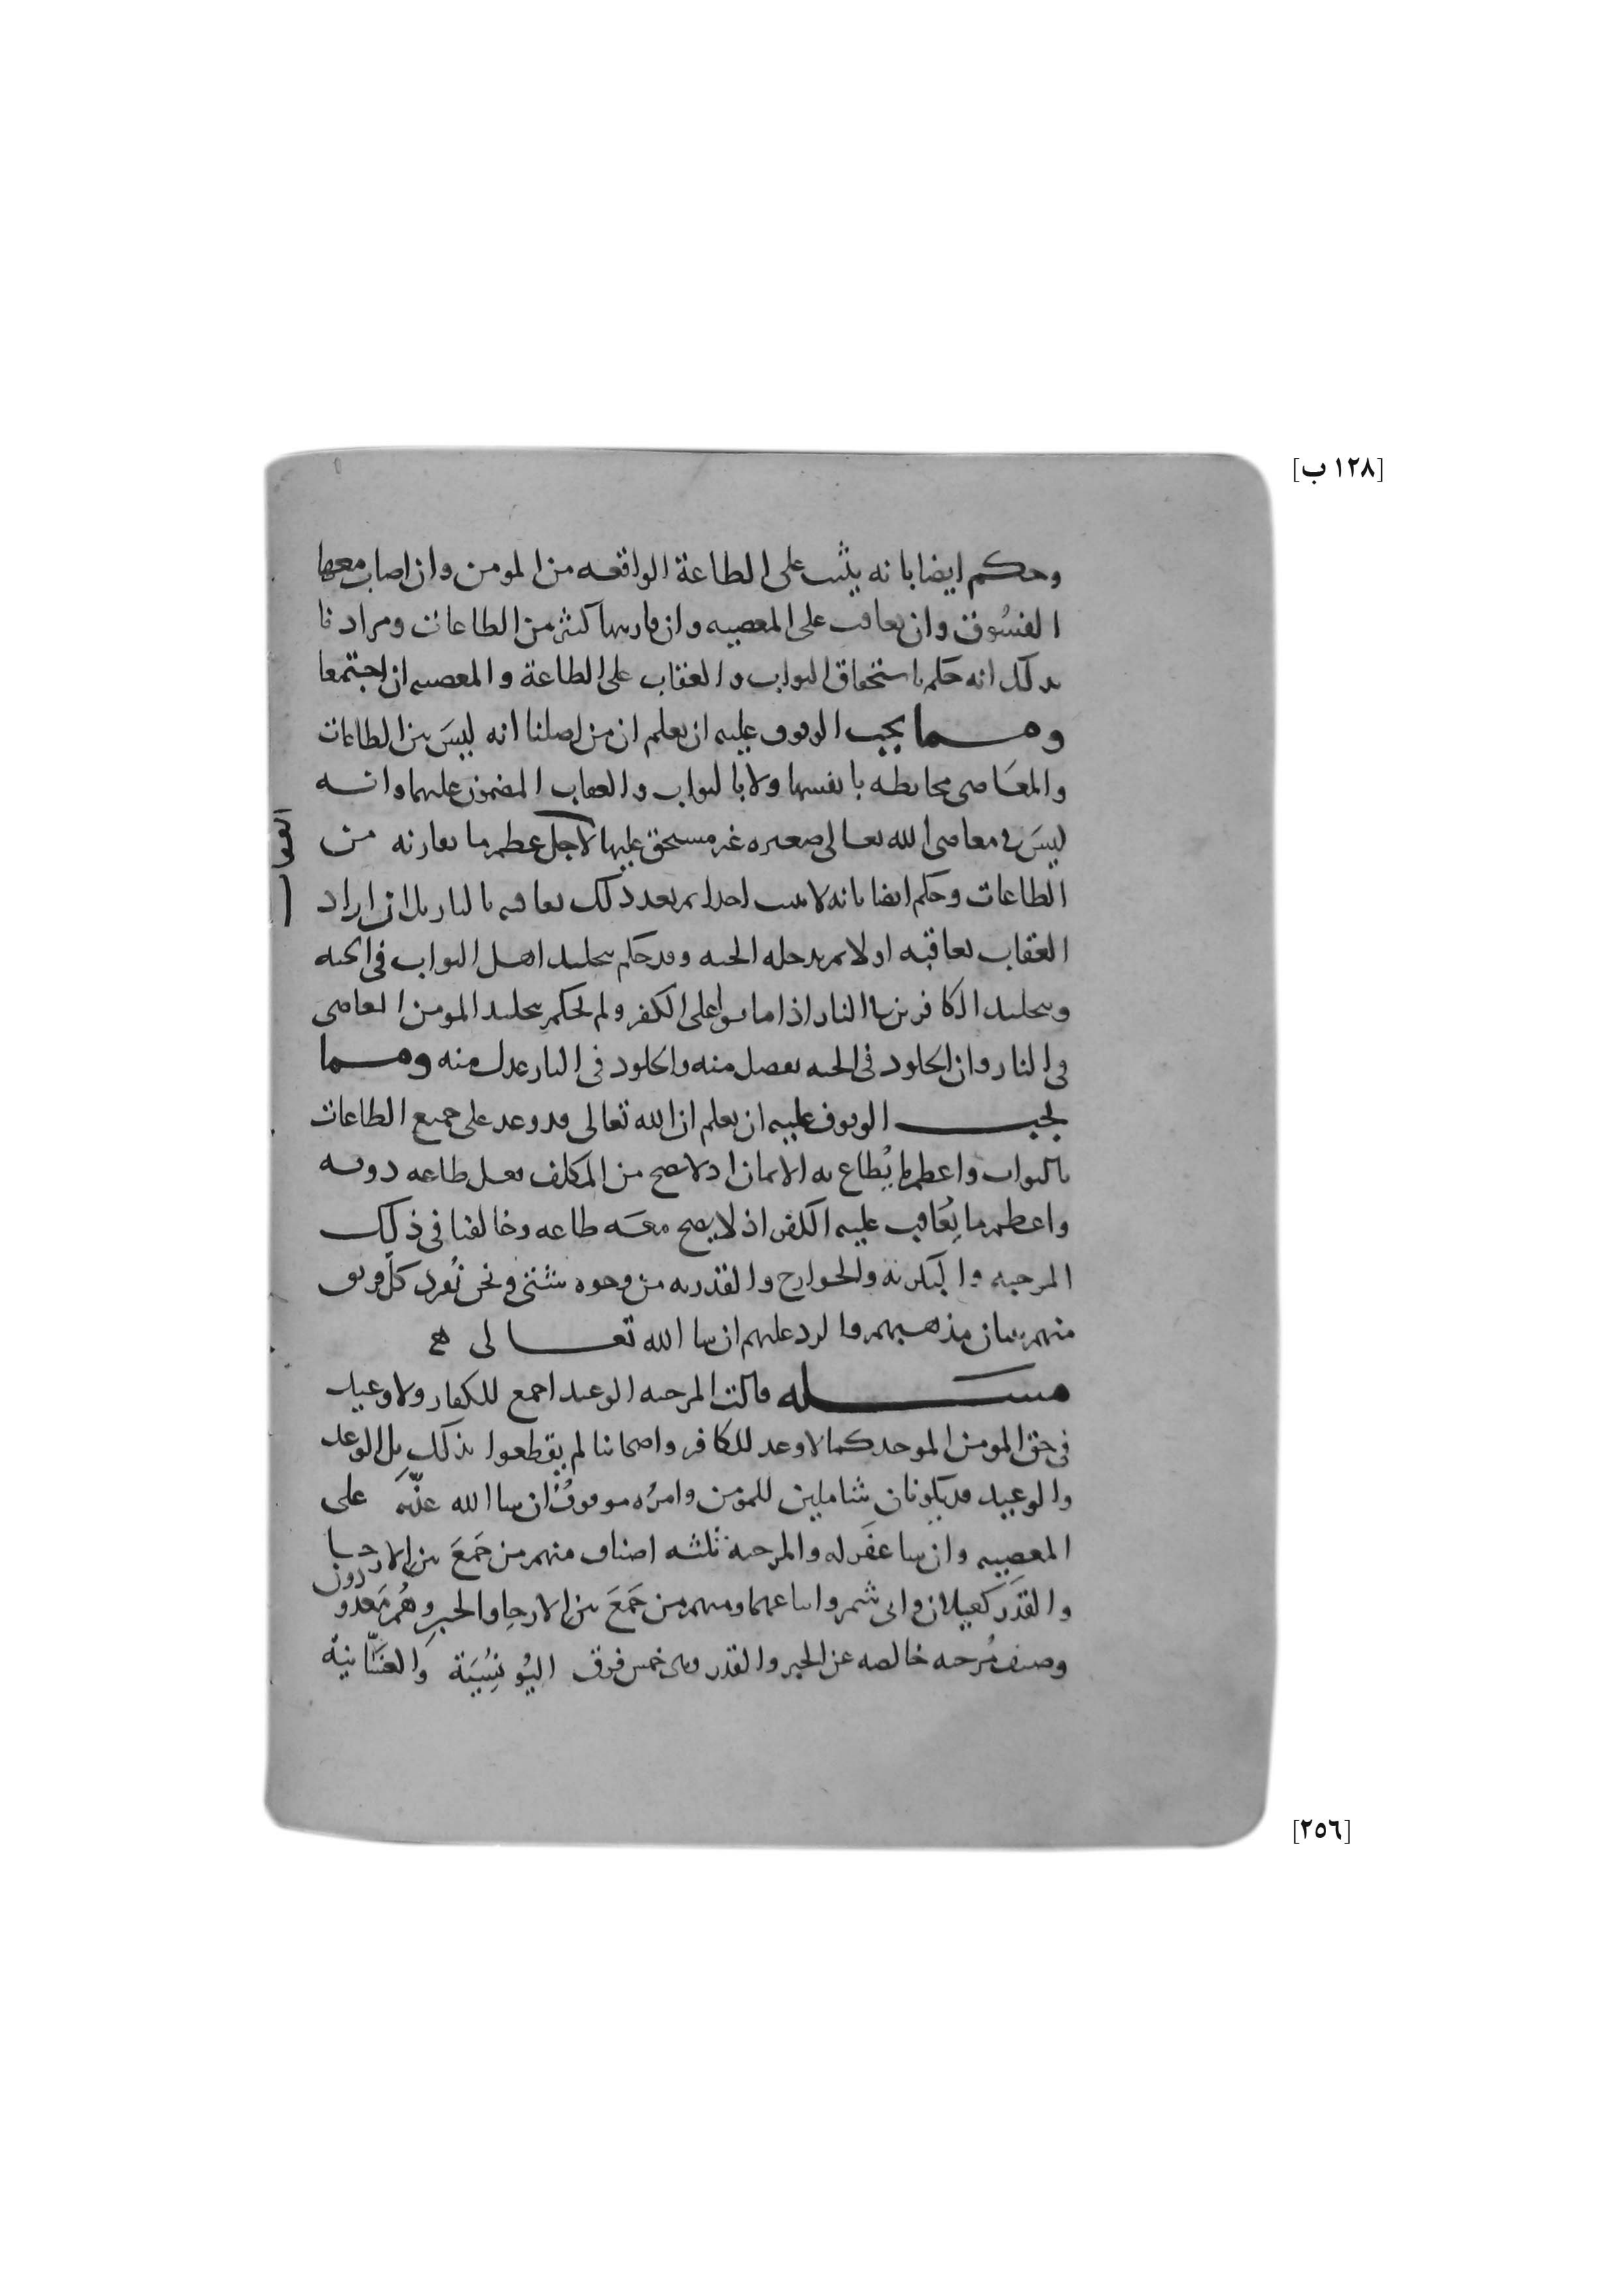 [١٢٨ ب]
وحكم ايضا بانه يثيب على الطاعة الواقعه من المومن وان اصاب معها
الفسُوق وان يعاقب على المعصيه وان قارنها كثير من الطاعات ومرادنا
بذلك انه حكم باستحقاق الثواب والعقاب على الطاعة والمعصيه ان اجتمعا
ومما يجب الوقوف عليه ان يعلم ان من اصلنا انه ليسَ بين الطاعات
والمعَاصى محابطه بانفسها ولا بالثواب والعقاب المضمون عليهما وانه
ليسَ فى معاصى الله تعالى صغيره غير مستحق عليها لاجل عظم ما يقارنه من
الطاعات وحكم ايضا بانه لا يثيب احدا ثم بعد ذلك يعاقبه بالنار بل ان اراد
العقاب يعاقبه اولا ثم يدخله الجنه وقد حكم بتخليد اهل الثواب فى الجنه
وبتخليد الكافرين فى النار اذا ماتوا على الكفر ولم يحكم بتخليد المومن العاصى
فى النار وان الخلود فى الجنه تفضل منه والخلود فى النار عدل منه ومما
يجب الوقوف عليه ان يعلم ان الله تعالى قد وعد على جميع الطاعات
بالثواب واعظم ما يُطاع به الايمان اذ لا يصح من المكلف فعل طاعه دونه
واعظم ما يُعاقب عليه الكفر اذ لا يصح معَه طاعه وخالفنا فى ذلك
المرجيه والبكريه والخوارج والقدريه من وجوه شتى ونحن نُفرد كل فريق
منهم ببيان مذهبهم والرد عليهم ان شا الله تعالى
مسَله قالت المرجيه الوعيد اجمع للكفار ولا وعيد
فى حق المومن الموحد كما لا وعد للكافر واصحابنا لم يقطعوا بذلك بل الوعد
والوعيد قد يكونان شاملين للمؤمن وامرُه موقوفُ ان شا الله عذّبَه على
المعصِيه وان شا غفَر له والمرجيه ثلثه اصناف منهم من جَمَعَ بين الارجا
والقدَر كغيلان وابى شمر واتباعهما ومنهم من جَمَعَ بين الارجا والجبر وهُم مَعدُودون
وصنف مُرجيه خالصه عن الجبر والقدر وهى خمس فرق اليُونِسُيَة وَالغسَّانيّة
[٢٥٦]